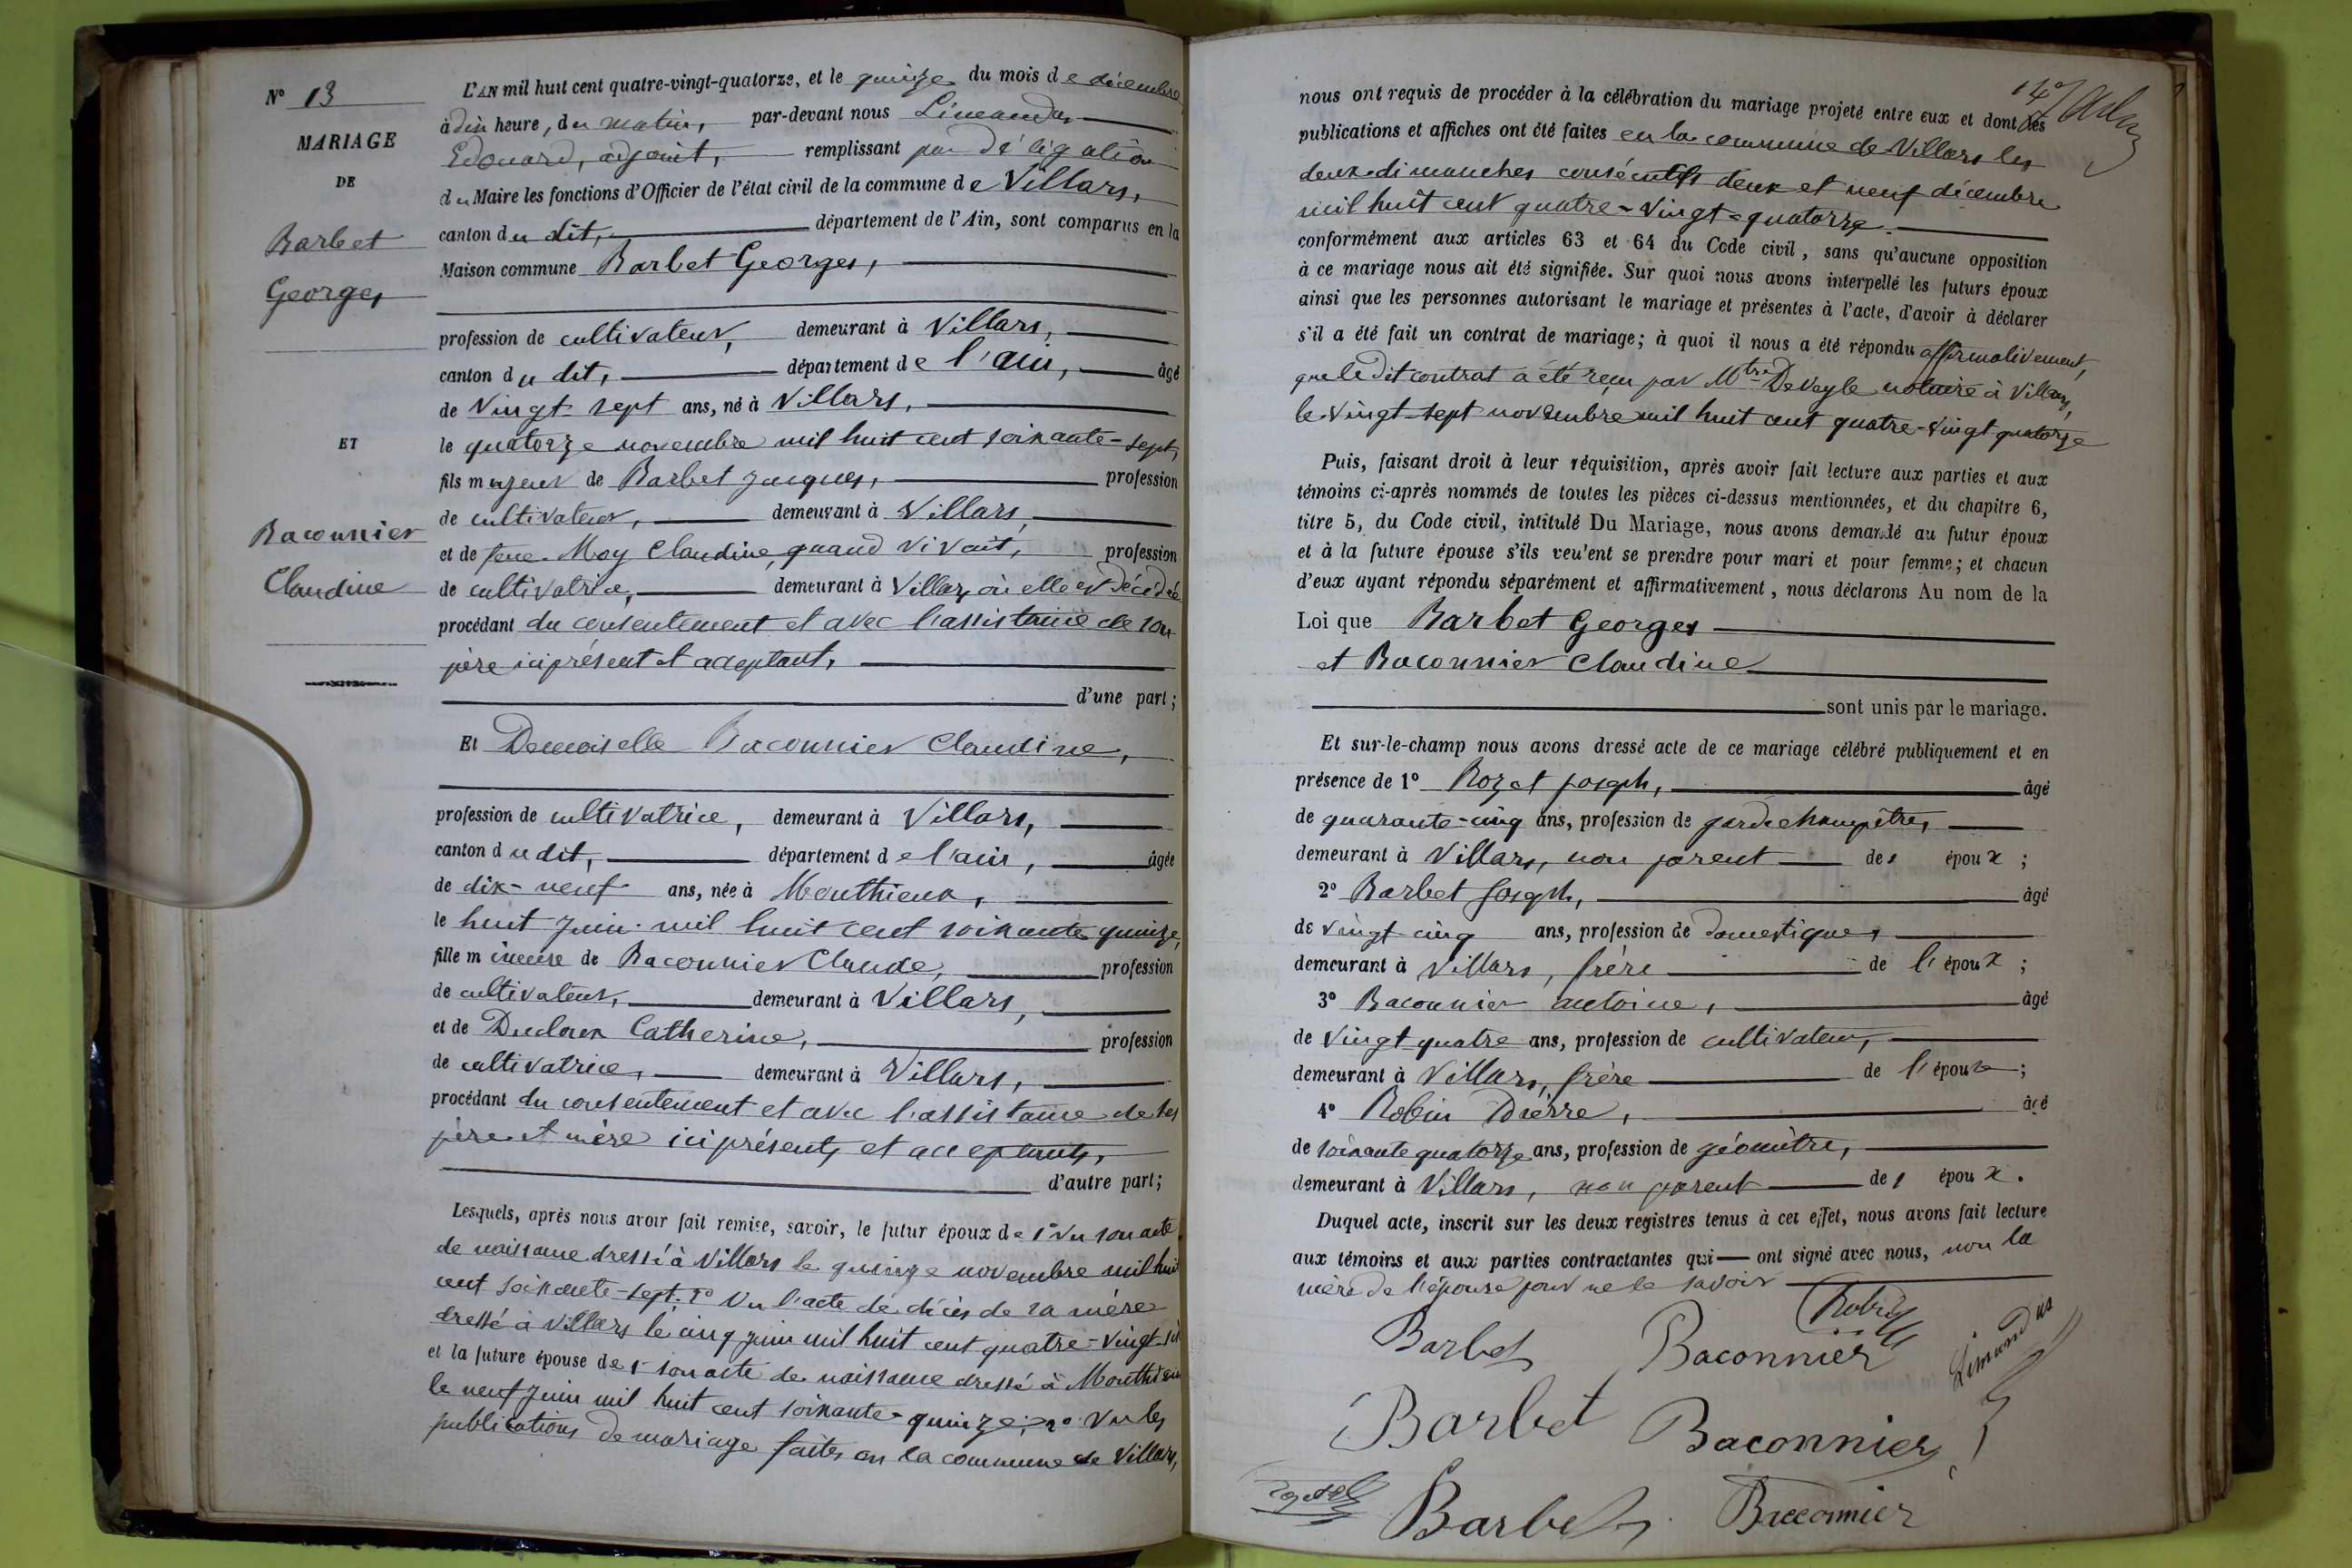 N° 13
MARIAGE
DE
Barbet
Georges
ET
Baconnier
Claudine
L'AN mil huit cent quatre-vingt-quatorze, et le quinze du mois de décembre
à dix heure, du matin, par-devant nous Limandas
Edouard, adjoint, remplissant par délégation
du Maire les fonctions d'Officier de l'état civil de la commune de Villars,
canton du dit, département de l'Ain, sont comparus en la
Maison commune Barbet Georges,
profession de cultivateur, demeurant à Villars,
canton du dit, département de l'ain, âgé
de vingt-sept ans, né à Villars,
le quatorze novembre mil huit cent soixante-sept,
fils majeur de Barbet Jacques, profession
de cultivateur, demeurant à Villars,
et de feue May Claudine, quand vivait, profession
de cultivatrice, demeurant à Villars où elle est décédée
procédant du consentement et avec l'assistance de son
père ici présent et acceptant,
d'une part;
Et Demoiselle Baconnier Claudine,
profession de cultivatrice, demeurant à Villars,
canton du dit, département de l'ain, âgée
de dix-neuf ans, née à Monthieux,
le huit juin mil huit cent soixante quinze,
fille mineure de Baconnier Claude, profession
de cultivateur, demeurant à Villars,
et de Ducloux Catherine, profession
de cultivatrice, demeurant à Villars,
procédant du consentement et avec l'assistance de ses
père et mère ici présents et acceptants,
d'autre part;
Lesquels, après nous avoir fait remise, savoir, le futur époux de 1° Vu son acte
de naissance dressé à Villars le quinze novembre mil huit
cent soixante-sept; 2° Vu l'acte de décès de sa mère
dressé à Villars le cinq juin mil huit cent quatre-vingt-six
et la future épouse de 1° son acte de naissance dressé à Monthieux
le neuf juin mil huit cent soixante-quinze; 2° Vu les
publications de mariage faites en la commune de Villars,
14e
nous ont requis de procéder à la célébration du mariage projeté entre eux et dont les
publications et affiches ont été faites en la commune de Villars les
deux dimanches consécutifs deux et neuf décembre
mil huit cent quatre-vingt-quatorze.
conformément aux articles 63 et 64 du Code civil, sans qu'aucune opposition
à ce mariage nous ait été signifiée. Sur quoi nous avons interpellé les futurs époux
ainsi que les personnes autorisant le mariage et présentes à l'acte, d'avoir à déclarer
s'il a été fait un contrat de mariage; à quoi il nous a été répondu affirmativement,
que le dit contrat a été reçu par Mtre Deveyle notaire à Villars,
le vingt-sept novembre mil huit cent quatre-vingt quatorze
Puis, faisant droit à leur réquisition, après avoir fait lecture aux parties et aux
témoins ci-après nommés de toutes les pièces ci-dessus mentionnées, et du chapitre 6,
titre 5, du Code civil, intitulé Du Mariage, nous avons demandé au futur époux
et à la future épouse s'ils veulent se prendre pour mari et pour femme; et chacun
d'eux ayant répondu séparément et affirmativement, nous déclarons Au nom de la
Loi que Barbet Georges
et Baconnier Claudine
sont unis par le mariage.
Et sur-le-champ nous avons dressé acte de ce mariage célébré publiquement et en
présence de 1° Rozet Joseph, âgé
de quarante-cinq ans, profession de garde champêtre,
demeurant à Villars, non parent des époux;
2° Barbet Joseph, âgé
de vingt cinq ans, profession de domestique,
demeurant à Villars, frère de l'époux;
3° Baconnier antoine, âgé
de vingt-quatre ans, profession de cultivateur,
demeurant à Villars, frère de l'épouse;
4° Robin Pierre, âgé
de soixante quatorze ans, profession de géomètre,
demeurant à Villars, non parent des époux.
Duquel acte, inscrit sur les deux registres tenus à cet effet, nous avons fait lecture
aux témoins et aux parties contractantes qui ont signé avec nous, non la
mère de l'épouse pour ne le savoir
Robin
Barbet Baconnier Limandas
Barbet Baconnier
Rozet Barbet Baconnier